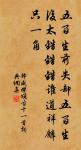 五百生前失却五百生
後太錯錯錯誰道祥麟
只一角
十一首